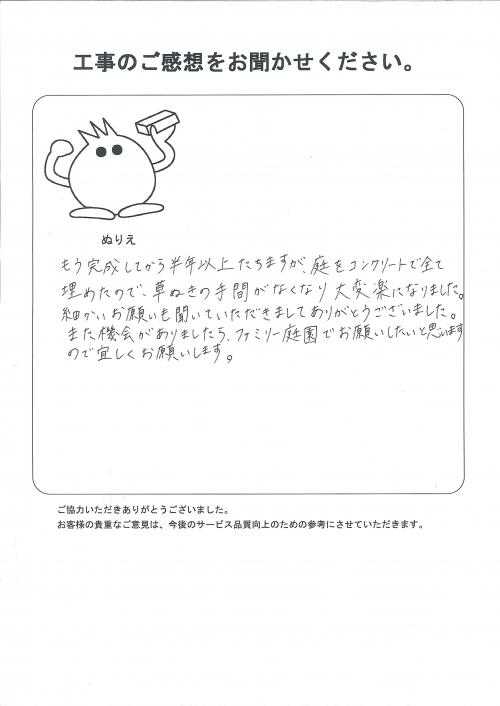 工事のご感想をお聞かせください。
ぬりえ
もう完成してから半年以上たちますが、庭をコンクリートで全て
埋めたので、草ぬきの手間がなくなり大変楽になりました。
細かいお願いも聞いていただきましてありがとうございました。
また機会がありましたら、ファミリー庭園でお願いしたいと思います
ので宜しくお願いします。
ご協力いただきありがとうございました。
お客様の貴重なご意見は、今後のサービス品質向上のための参考にさせていただきます。